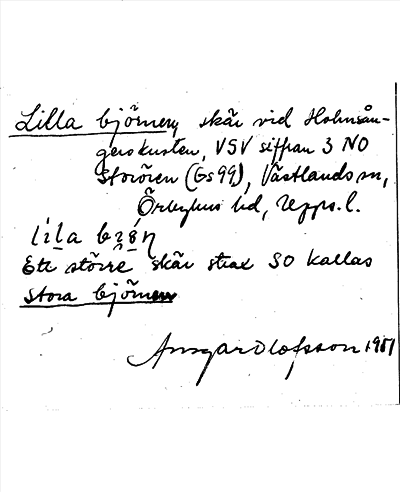 Lilla björnen, skär vid Holmsån-
gerskusten, VSV siffran 3 NO
Storören (Gs 99), Västlands sn,
Örbyhus hd, Upps. l.
Ett större skär strax SO kallas
Stora björnen
Ansgar Olofsson 1951